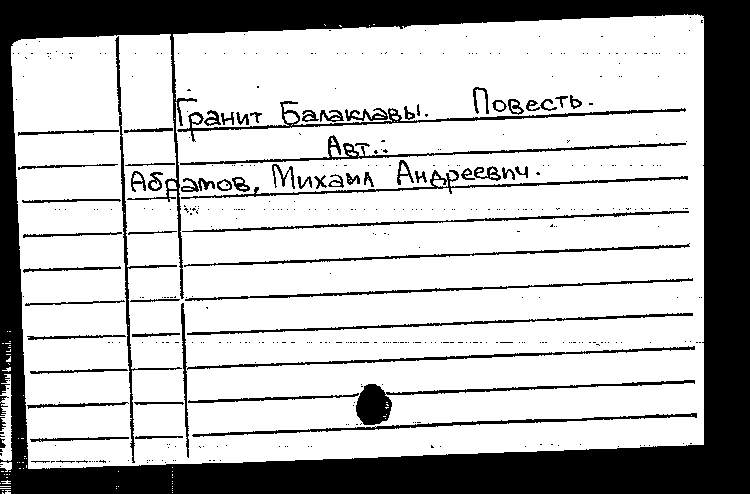 Гранит Балаклавы. Повесть.
Авт.:
Абрамов, Михаил Андреевич.